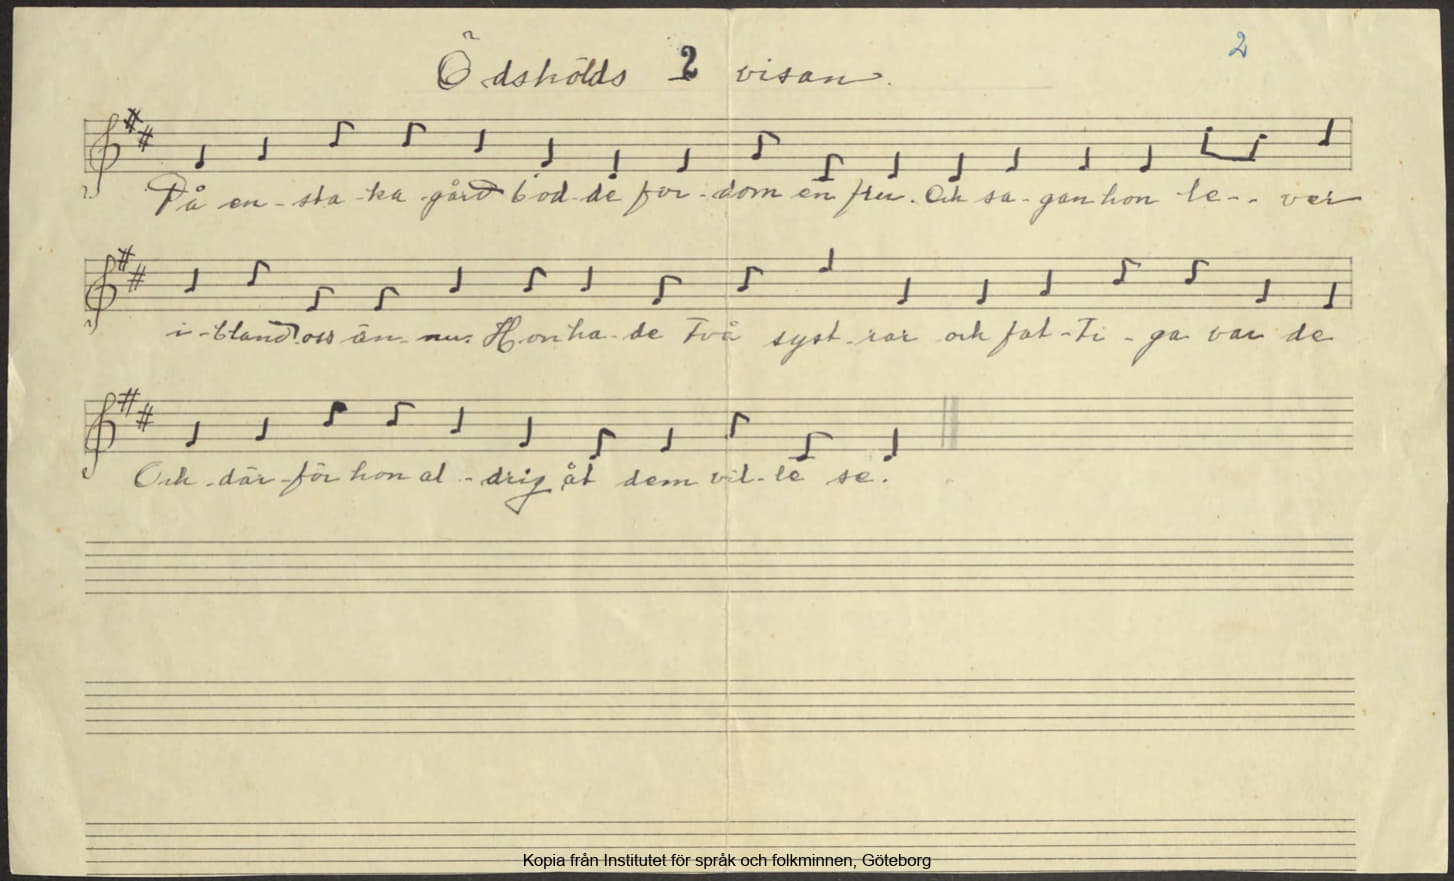 Ödshölds 2 visan.
2
På en-sta-ka-gård bod-de for-dom en fru. Och sa-gan hon le-- ver
i-bland oss än-nu. Hon ha-de två syst-rar och fat-ti-ga var de
Och-där-för hon al-drig åt dem vil-le se.
Kopia från Institutet för språk och folkminnen, Göteborg